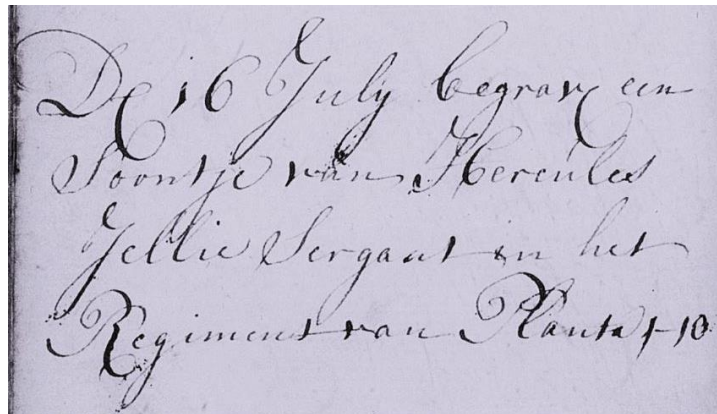 De 16 July begrave een
Soontje van Hercules
Jellie Sergaat in het
Regiment van Planta 1-10